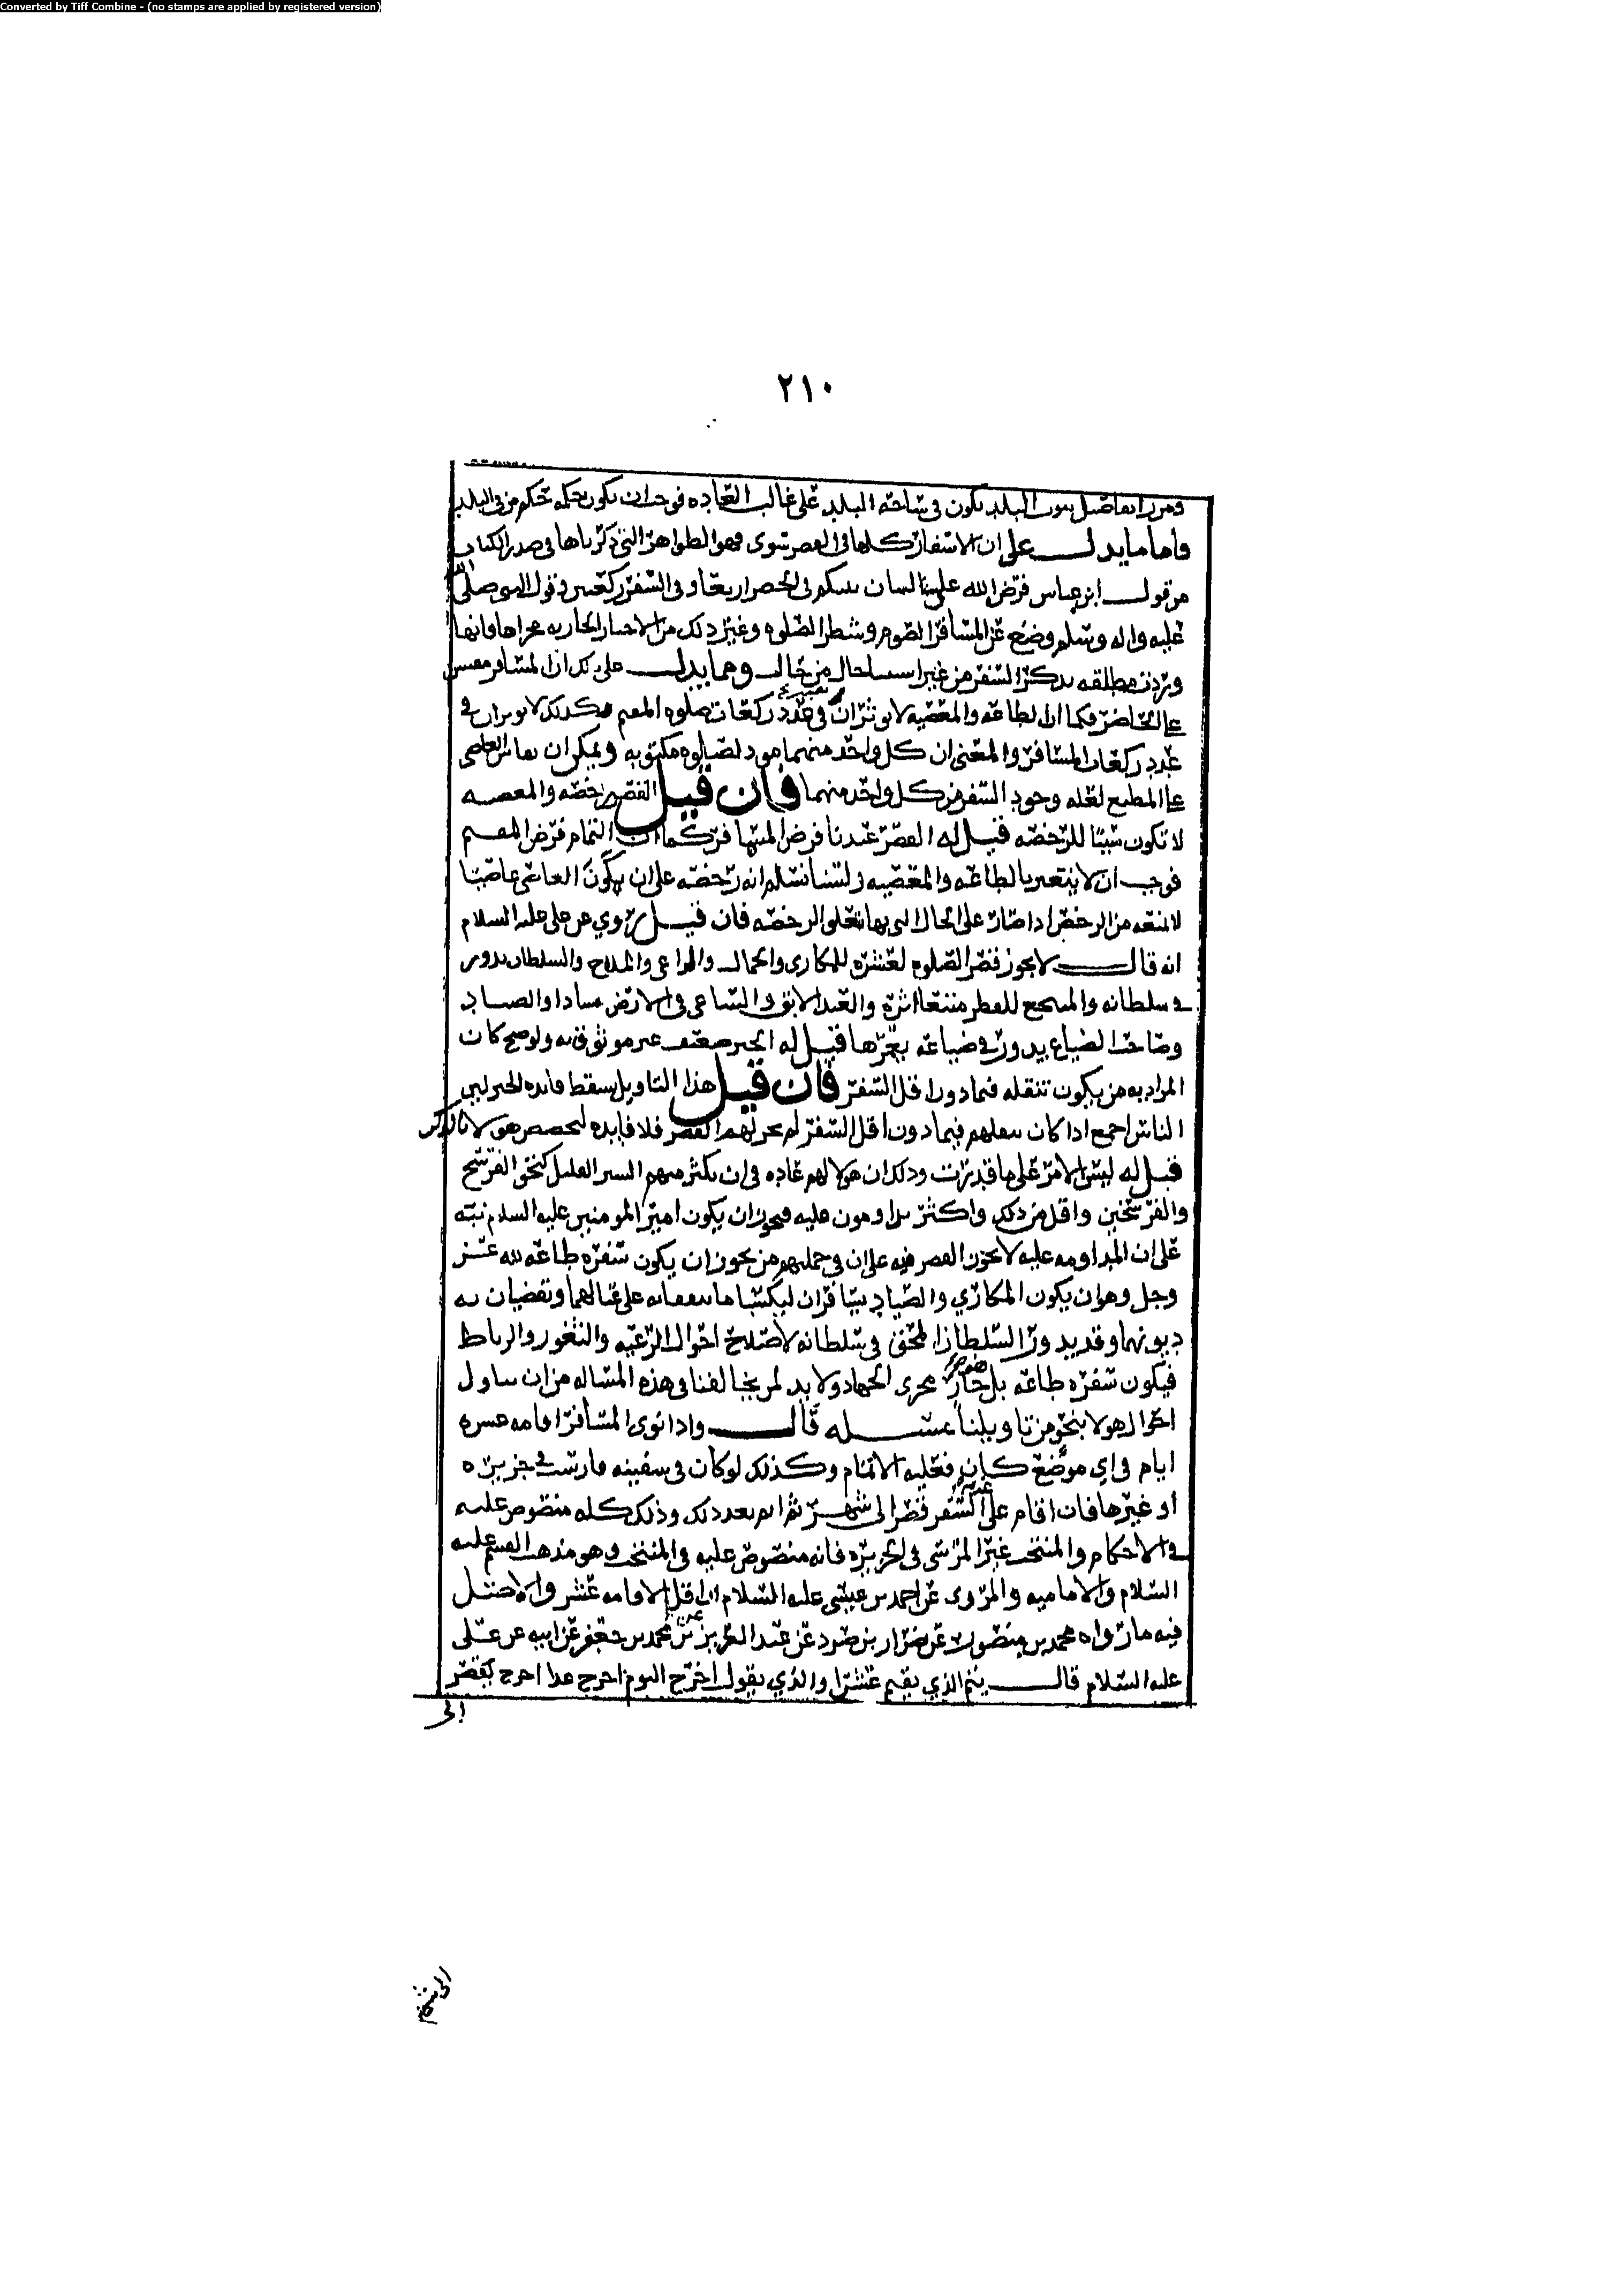 Converted by Tiff Combine - (no stamps are applied by registered version)
٢١٠
بيوت البلد يكون في ساحة البلد على غالب العادة فوجب ان يكون حكمه حكم من في البلد
واما ما يدل على ان الاسفار كلها في القصر سوى فهو الظواهر التي ذكرناها في صدر الكتاب
من قول ابن عباس فرض الله على لسان نبيكم في الحضر اربعا وفي السفر ركعتين وقول النبي صلى الله
عليه واله وسلم وضع عن المسافر الصوم وشطر الصلوه وغير ذلك من الاخبار الجاريه مجراها فانها
وردت مطلقه بذكر السفر من غير استثنا حال من حال ومما يدل على ذلك ان المسافر مقيس
على الحاضر فكما ان الطاعه والمعصيه لا يوثران في عدد ركعات صلوه المقيم فكذلك لا يوثران في
عدد ركعات المسافر والمعنى ان كل واحد منهما مود لصلوه مكتوبه ويمكن ان يقاس العاصي
على المطيع لعله وجود السفر من كل واحد منهما فان قيل القصر رخصه والمعصيه
لا تكون سببا للرخصه قيل له القصر عندنا فرض المسافر كما ان التمام فرض المقيم
فوجب ان لا يتغير بالطاعه والمعصيه ولسنا نسلم انه رخصه على ان يكون العاصي عاصيا
لا يمنعه من الرخص اذا صار على الحال التي بها تعلق الرخصه فان قيل روي عن علي عليه السلام
انه قال لا يجوز قصر الصلوه لعشره للمكاري والجمال والراعي والملاح والسلطان يدور
في سلطانه والمنتجع للقطر متبعا اثره والعبد الابق والساعي في الارض فسادا والصياد
وصاحب الضياع يدور في ضياعه يعمرها قيل له الخبر ضعيف غير موثوق به ولو صح كان
المراد به من يكون تنقله فيما دون اقل السفر فان قيل هذا التاويل يسقط فايده الخبر لان
الناس اجمع اذا كان تنقلهم فيما دون اقل السفر لم يجز لهم القصر فلا فايده لتخصيص هولا بالذكر
قيل له ليس الامر على ما قدرت وذلك ان هولا لهم عاده في ان يكثر منهم السير القليل كنحو الفرسخ
والفرسخين واقل من ذلك واكثر يداومون عليه فيجوز ان يكون امير المومنين عليه السلام نبه
على ان المداومه عليه لا يجوز القصر فيه على ان في جملتهم من يجوز ان يكون سفره طاعه لله عز
وجل وهو ان يكون المكاري والصياد يسافران ليكسبا ما ينفقانه على عيالهما ويقضيان به
ديونهما وقد يدور السلطان المحق في سلطانه لاصلاح احوال الرعيه والثغور والرباط
فيكون سفره طاعه بل جار مجرى الجهاد ولا بد لمن يخالفنا في هذه المساله من ان يتاول
احوال هولا بنحو من تاويلنا مسله قال واذا نوى المسافر اقامه عشره
ايام في اي موضع كان فعليه الاتمام وكذلك لو كان في سفينه فارست في جزيره
او غيرها فان اقام على السفر قصر الى شهر ثم اتم بعد ذلك وذلك كله منصوص عليه
في الاحكام والمنتخب غير المرسى في الجزيره فانه منصوص عليه في المنتخب وهو مذهب القسم عليه
السلام والاماميه والمروى عن احمد بن عيسى عليه السلام ان اقل الاقامه عشر والاصل
فيه ما رواه محمد بن منصور عن ضرار بن صرد عن عبد العزيز بن محمد عن جعفر عن ابيه عن علي
عليه السلام قال يتم الذي يقيم عشرا والذي يقول اخرج اليوم اخرج غدا اخرج يقصر
الى